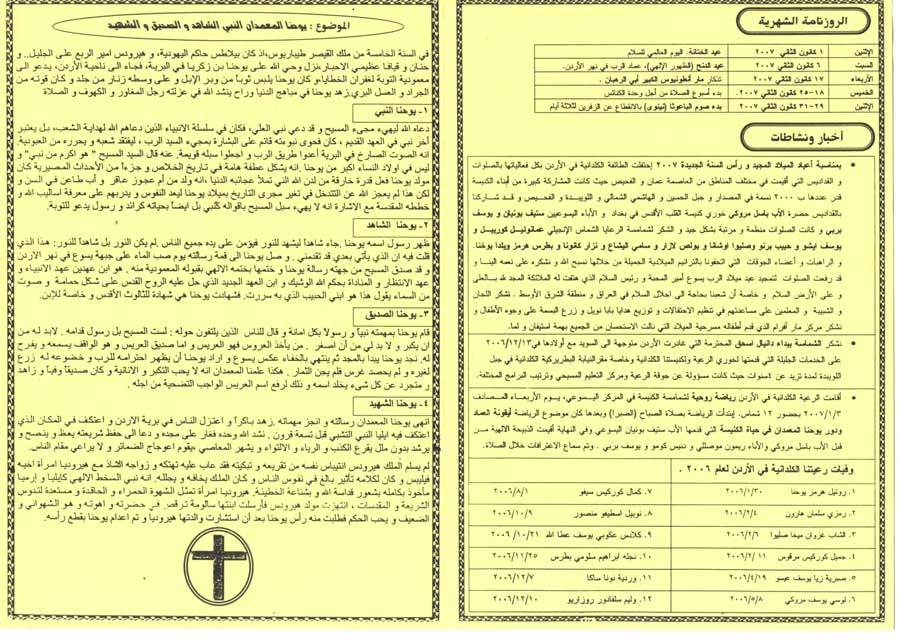 الروزنامة الشهرية
الإثنين ١ كانون الثاني ٢٠٠٧ عيد الختانة. اليوم العالمي للسلام
السبت ٦ كانون الثاني ٢٠٠٧ عيد المنح (الظهور الإلهي)، عماد الرب في نهر الأردن.
الأربعاء ١٧ كانون الثاني ٢٠٠٧ تذكار مار أنطونيوس الكبير أبي الرهبان.
الخميس ١٨-٢٥ كانون الثاني ٢٠٠٧. بدء أسبوع الصلاة من أجل وحدة الكنائس.
الإثنين ٢٩-٣١ كانون الثاني ٢٠٠٧ بدء صوم الباعوثا (نينوى) بالانقطاع عن الزفرين لثلاثة أيام
أخبار ونشاطات
• بمناسبة أعياد الميلاد المجيد و رأس السنة الجديدة ٢٠٠٧ إحتفلت الطائفة الكلدانية في الأردن بكل فعالياتها بالصلوات
و القداديس التي أقيمت في مختلف المناطق من العاصمة عمان و الفحيص حيث كانت المشاركة كبيرة من أبناء الكنيسة
قدر عددها ب ٢٠٠٠ نسمة في المصدار و جبل الحسين و الهاشمي الشمالي و اللويبدة و الفحيص و قد شاركنا
بالقداديس حضرة الأب باسل مروكي خوري كنيسة القلب الأقدس في بغداد و الأباء اليسوعيين ستيف بونيان و يوسف
بربي و كانت الصلوات منظمة و مرتبة بشكل جيد و الشكر لشمامسة الرعايا الشماس الإنجيلي عمانوئيل كورييل و
يوسف ايشو و حبيب برنو وصليوا اوشانا و بولص لازار و سامي اليشاع و نزار كانونا و بطرس هرمز ويلدا يوحنا.
و الراهبات و أعضاء الجوقات التي اتحفونا بالترانيم الميلادية الجميلة من خلالها نسبح الله و نشكره على نعمه الينا و
قد رفعت الصلوات لتمجيد عيد ميلاد الرب يسوع أمير المحبة ورئيس السلام الذي هتفت له الملائكة المجد لله بالعلى
و على الأرض السلام و خاصة أن شعبنا بحاجة الى احلال السلام في العراق و منطقة الشرق الأوسط. نشكر اللجان
و الشبيبة و المعلمين على مساعدتهم في تنظيم الاحتفالات و توزيع هدايا بابا نويل و زرع البسمة على وجوه الأطفال و
نشكر مركز مار أفرام الذي قدم أطفاله مسرحية الميلاد التي نالت الاستحسان من الجميع بهمة استيفان و لما.
• نشكر الشماسة بيداء دانيال اسحق المحترمة التي غادرت الأردن متوجهة الى السويد مع أولادها في٢٠٠٦/١٢/١٣
على الخدمات الجليلة التي قدمتها لخوري الرعية ولكنيستنا الكلدانية وخاصة مقر النيابة البطريركية الكلدانية في جبل
اللويبدة لمدة تزيد عن ٤سنوات حيث كانت مسؤولة عن جوقة الرعية ومركز التعليم المسيحي وترتيب البرامج المختلفة.
• أقامت الرعية الكلدانية في الأردن رياضة روحية لشمامسة الكنيسة في المركز اليسوعي، يوم الأربعاء المصادف
٢٠٠٧/١/٣ بحضور ١٢ شماس. إبتدأت الرياضة بصلاة الصباح (الصبرا) وبعدها كان موضوع الرياضة أيقونة العماد
ودور يوحنا المعمدان في حياة الكنيسة التي قدمها الأب ستيف بونيان اليسوعي وفي النهاية أقيمت الذبيحة الالهية من
قبل الأب باسل مروكي والأباء ريمون موصللي و دنيس كومو و يوسف بربي. وتم سماع الاعترافات خلال الصلاة.
وفيات رعيتنا الكلدانية في الأردن لعام ٢٠٠٦.
١. روئيل هرمز يوحنا ٢٠٠٦/١/٣٠ ٧. كمال كوركيس سيفو ٢٠٠٦/٨/١
٢. رمزي سلمان هارون ٢٠٠٦/٢/٤ ٨. نوبيل اسطيفو منصور ٢٠٠٦/١٠/٩
٣. الشاب غزوان ميخا صليوا ٢٠٠٦/٢/٦ ٩. كلانس عكوبي يوسف عطا الله ٢٠٠٦/١٠/٢١
٤. جميل كوركيس مرقوس ٢٠٠٦/٢/١١ ١٠. نجله ابراهيم سلومي بطرس ٢٠٠٦/١١/٢٥
٥. صبرية زيا يوسف عيسو ٢٠٠٦/٤/١٩ ١١. وردية نونا ساكا ٢٠٠٦/١٢/٧
٦. لوسي يوسف مروكي ٢٠٠٦/٥/٨ ١٢. وليم سلفادور روزاريو ٢٠٠٦/١٢/١٠
الموضوع : يوحنا المعمدان النبي الشاهد و الصديق و الشهيد
في السنة الخامسة من ملك القيصر طيباريوس،اذ كان بيلاطس حاكم اليهودية، و هيرودس امير الربع على الجليل.. و
حنان و قيافا عظيمي الاحبار،نزل وحي الله على يوحنا بن زكريا في البرية، فجاء الى ناحية الأردن، يدعو الى
معمودية التوبة لغفران الخطايا،و كان يوحنا يلبس ثوبا من وبر الإبل و على وسطه زنار من جلد و كان قوته من
الجراد و العسل البري.زهد يوحنا في مباهج الدنيا وراح ينشد الله في عزلته رجل المغاور و الكهوف و الصلاة
١ - يوحنا النبي
دعاه الله ليهيء مجيء المسيح و قد دعي نبي العلي، فكان في سلسلة الانبياء الذين دعاهم الله لهداية الشعب، بل يعتبر
آخر نبي في العهد القديم ، كان فحوى نبوءته قائم على البشارة بمجيء السيد الرب ، ليفتقد شعبه و يحرره من العبودية.
انه الصوت الصارخ في البرية أعدوا طريق الرب و اجعلوا سبله قويمة. عنه قال السيد المسيح " هو اكرم من نبي" و
ليس في اولاد النساء اكبر من يوحنا .انه يشكل عطفة هامة في تاريخ الخلاص و جزءاً من الأحداث المصيرية كان
مولد يوحنا فعل قدرة خارقة من لدن الله الذي تملأ عجائبه الدنيا ،انه ولد من أم عجوز عاقر و أب طاعن في السن و
لكن هذا لم يعجز الله عن التدخل في تغير مجرى التاريخ بميلاد يوحنا ليعد النفوس و يدربهم على معرفة اساليب الله و
خططه المقدسة مع الاشارة انه لا يهيء سبل المسيح باقواله كنبي بل ايضاً بحياته كرائد و رسول يدعو للتوبة.
٢- يوحنا الشاهد
ظهر رسول اسمه يوحنا .جاء شاهداً ليشهد للنور فيؤمن على يده جميع الناس .لم يكن النور بل شاهداً للنور: هذا الذي
قلت فيه ان الذي يأتي بعدي قد تقدمني . و صل يوحنا الى قمة رسالته يوم صب الماء على جبهة يسوع في نهر الاردن
و قد صدق المسيح من جهته رسالة يوحنا و ختمها بختمه الالهي بقبوله المعمودية منه . هو ابن عهدين عهد الانبياء و
عهد الانتظار و المناداة بحكم الله الوشيك و ابن العهد الجديد الذي حل عليه الروح القدس على شكل حمامة و صوت
من السماء يقول هذا هو ابني الحبيب الذي به سررت. فشهادت يوحنا هي شهادة للثالوث الأقدس و خاصة للإبن.
٣- يوحنا الصديق
قام يوحنا بمهمته نبياً و رسولا بكل امانة و قال للناس الذين يلتفون حوله : لست المسيح بل رسول قدامه . لابد له من
ان يكبر و لا بد لي من أن اصغر . من يأخذ العروس فهو العريس و اما صديق العريس و هو الواقف يسمعه و يفرح
له. نجد يوحنا يبدا بالمجد ثم ينتهي بالخفاء عكس يسوع و اراد يوحنا أن يظهر احترامه للرب و خضوعه له زرع
لغيره و لم يحصد غرس فلم يجن الثمار . هكذا علمنا المعمدان انه لا يحب التكبر و الانانية و كان صديقاً وفياً و زاهد
و متجرد عن كل شيء يخلد اسمه و ذلك لرفع اسم العريس الواجب التضحية من اجله .
٤ - يوحنا الشهيد
انهى يوحنا المعمدان رسالته و انجز مهماته .زهد باكراً و اعتزل الناس في برية الاردن و اعتكف في المكان الذي
اعتكف فيه ايليا النبي التشبي قبل تسعة قرون . نشد الله وحده فغار على مجده و دعا الى حفظ شريعته يعظ و ينصح و
يرشد بدون ملل يقرع الكتب و الرياء و الالتواء و يشهر المعاصي ،يقوم اعوجاج الضمائر و لا يراعي مقام الناس.
لم يسلم الملك هيرودس انتيباس نفسه من تقريعه و تبكيته فقد عاب عليه تهتكه و زواجه الشاذ مع هيروديا امرأة اخيه
فيليبس و كان لكلامه تأثير بالغ في نفوس الناس و كان الملك يخافه و يجلله. انه نبي السخط الالهي كايليا و إرميا
مأخوذ بكامله بشعور قداسة الله و بشناعة الخطيئة. هيروديا امرأة تمثل الشهوة الحمراء و الحاقدة و مستعدة لتدوس
الشريعة و المقدسات ، انتهزت مولد هيرودس فأرسلت ابنتها سالومة ترقص في حضرته و اهوته و هو الشهواني و
الضعيف و يحب الحكم فطلبت منه رأس يوحنا بعد أن استشارت والدتها هيروديا و تم اعدام يوحنا بقطع رأسه.